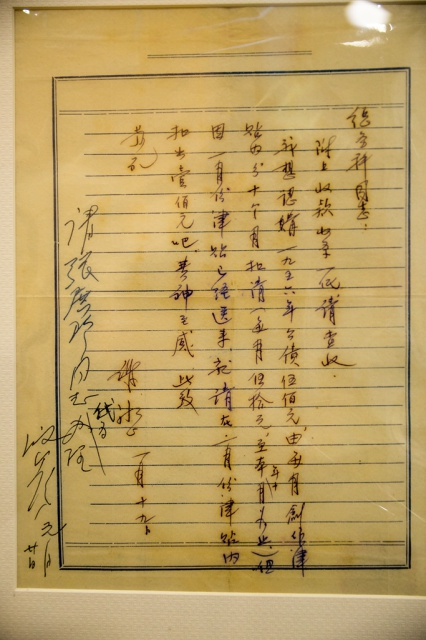 总务科同志：
附上收款收条一纸请查收。
我想認購一九五六年公债伍佰元，由每月創作津
贴内分十个月扣清（每月伍拾元，至本年十月为止）但
因一月份津贴已经送来，就请在二月份津贴内
扣出壹佰元吧。费神至感 此致
敬礼
谢冰心 一月十九日
请张同志代为办理
元月廿日